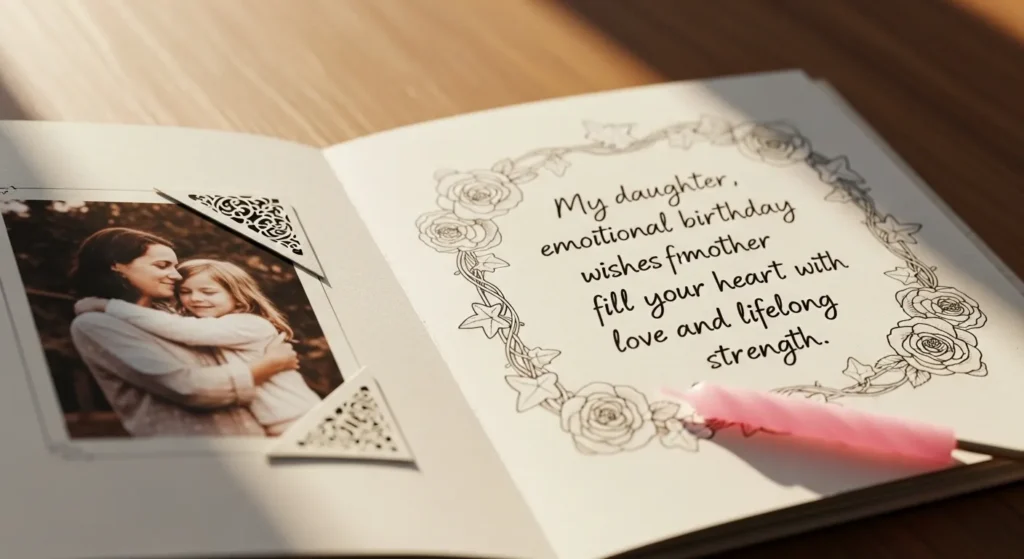 My daughter,
emoitional birthday
wishes fmother
fill your heart with
love and lifelong
strength.